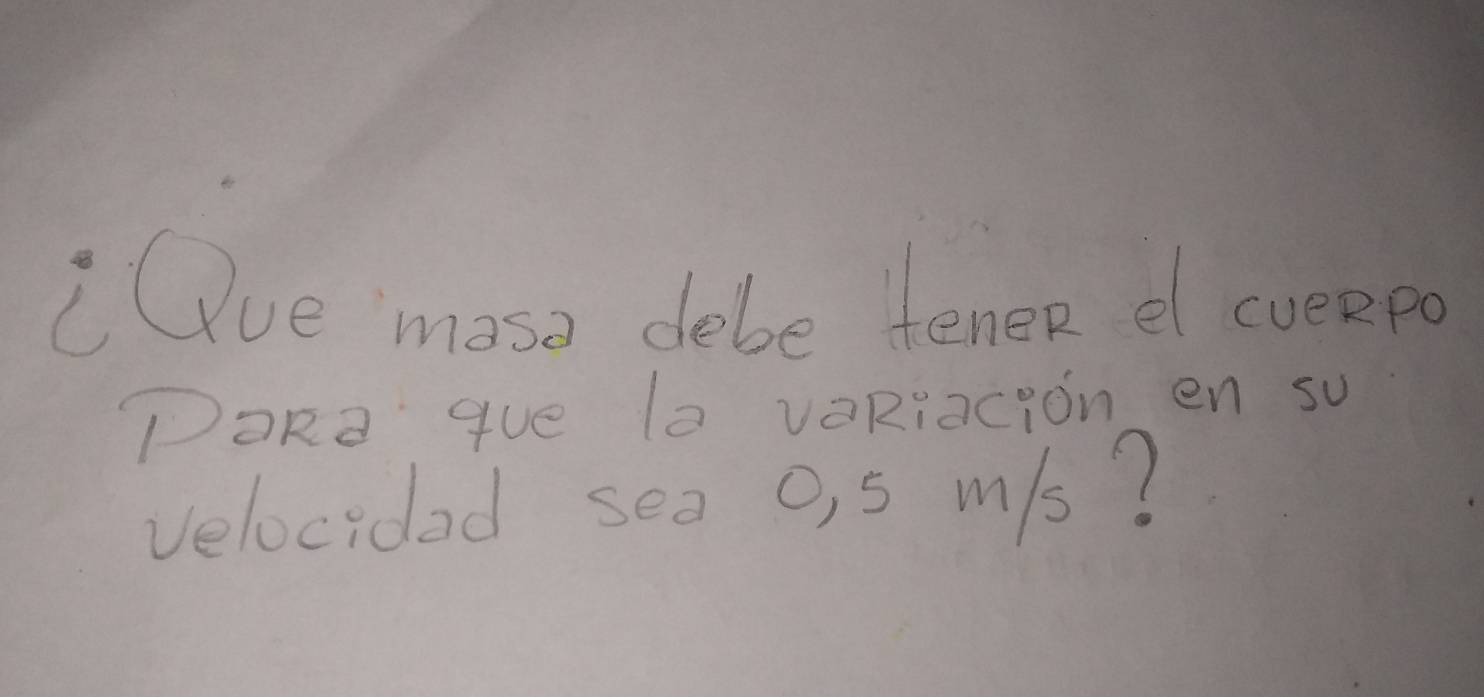 ¿Que masa debe tener el cuerpo
Para que la variación en su
velocidad sea 0,5 m/s?